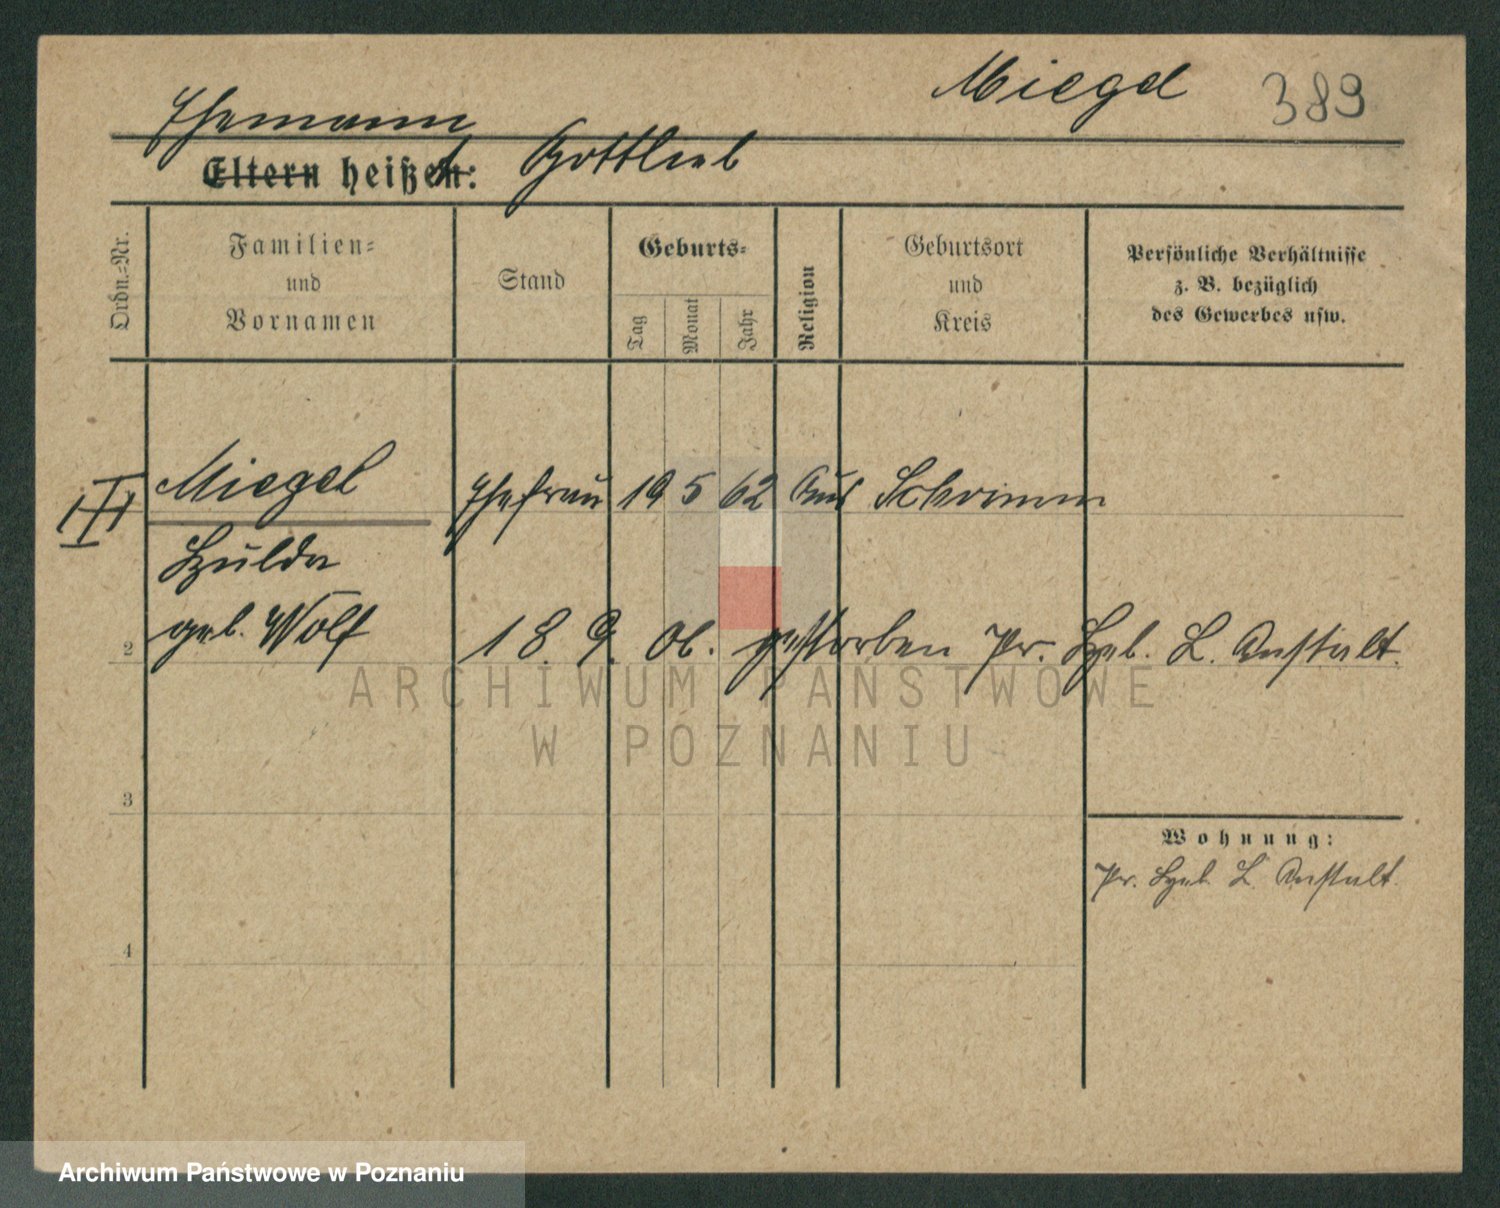 Miegel 389
Ehemann
Eltern heißen: Gottlieb
Ordn.-Nr.
Familien-
und
Vornamen
Stand
Geburts-
Tag
Monat
Jahr
Religion
Geburtsort
und
Kreis
Persönliche Verhältnisse
z. B. bezüglich
des Gewerbes usw.
Miegel Ehefrau 19 5 62 Schrimm
Hulda
geb. Wolf
2 18. 9. 06. gestorben Pr. Heb. L. Anstalt.
ARCHIWUM PAŃSTWOWE
W POZNANIU
3
Wohnung:
Pr. Heb. L. Anstalt.
4
Archiwum Państwowe w Poznaniu